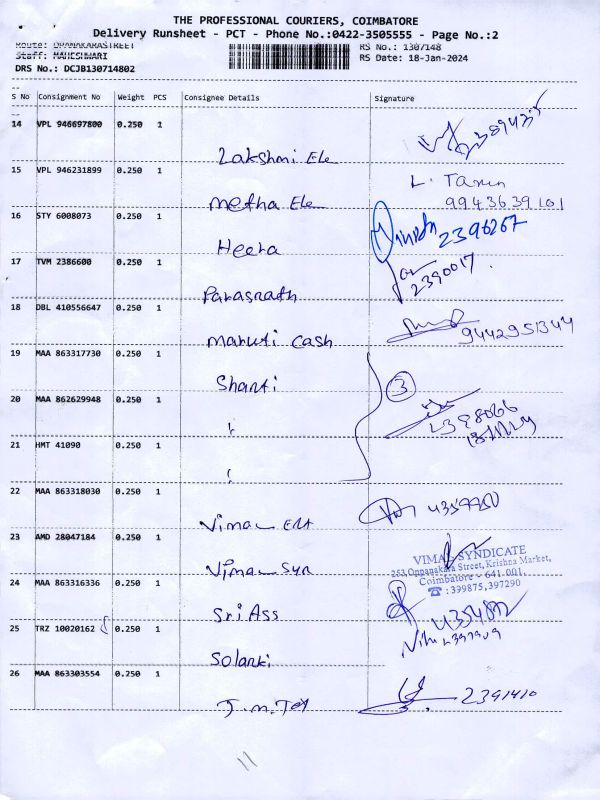 THE PROFESSIONAL COURIERS, COIMBATORE
Delivery Runsheet - PCT - Phone No.:0422-3505555 - Page No.:2
Route: DHANAKARASTREET
Staff: MAHESHWARI
DRS No.: DCJB130714802
RS No.: 1307148
RS Date: 18-Jan-2024
S No Consignment No Weight PCS Consignee Details Signature
14 VPL 946697800 0.250 1
Lakshmi Ele
15 VPL 946231899 0.250 1
L. Tarun
Metha Ele 9943639101
16 STY 6008073 0.250 1
2396267
Heera
17 TVM 2386600 0.250 1
2390017
Parasnath
18 DBL 410556647 0.250 1
Maruti Cash 9442951344
19 MAA 863317730 0.250 1
Shanti 3
20 MAA 862629948 0.250 1
21 HMT 41090 0.250 1
22 MAA 863318030 0.250 1
Vimal
23 AMD 28047184 0.250 1
VIMAL SYNDICATE
253,Oppanakara Street, Krishna Market,
Vimal Syn Coimbatore - 641 001.
☎ : 399875,397290
24 MAA 863316336 0.250 1
Sri Ass
25 TRZ 10020162 0.250 1
Solanki
26 MAA 863303554 0.250 1
2391410
11